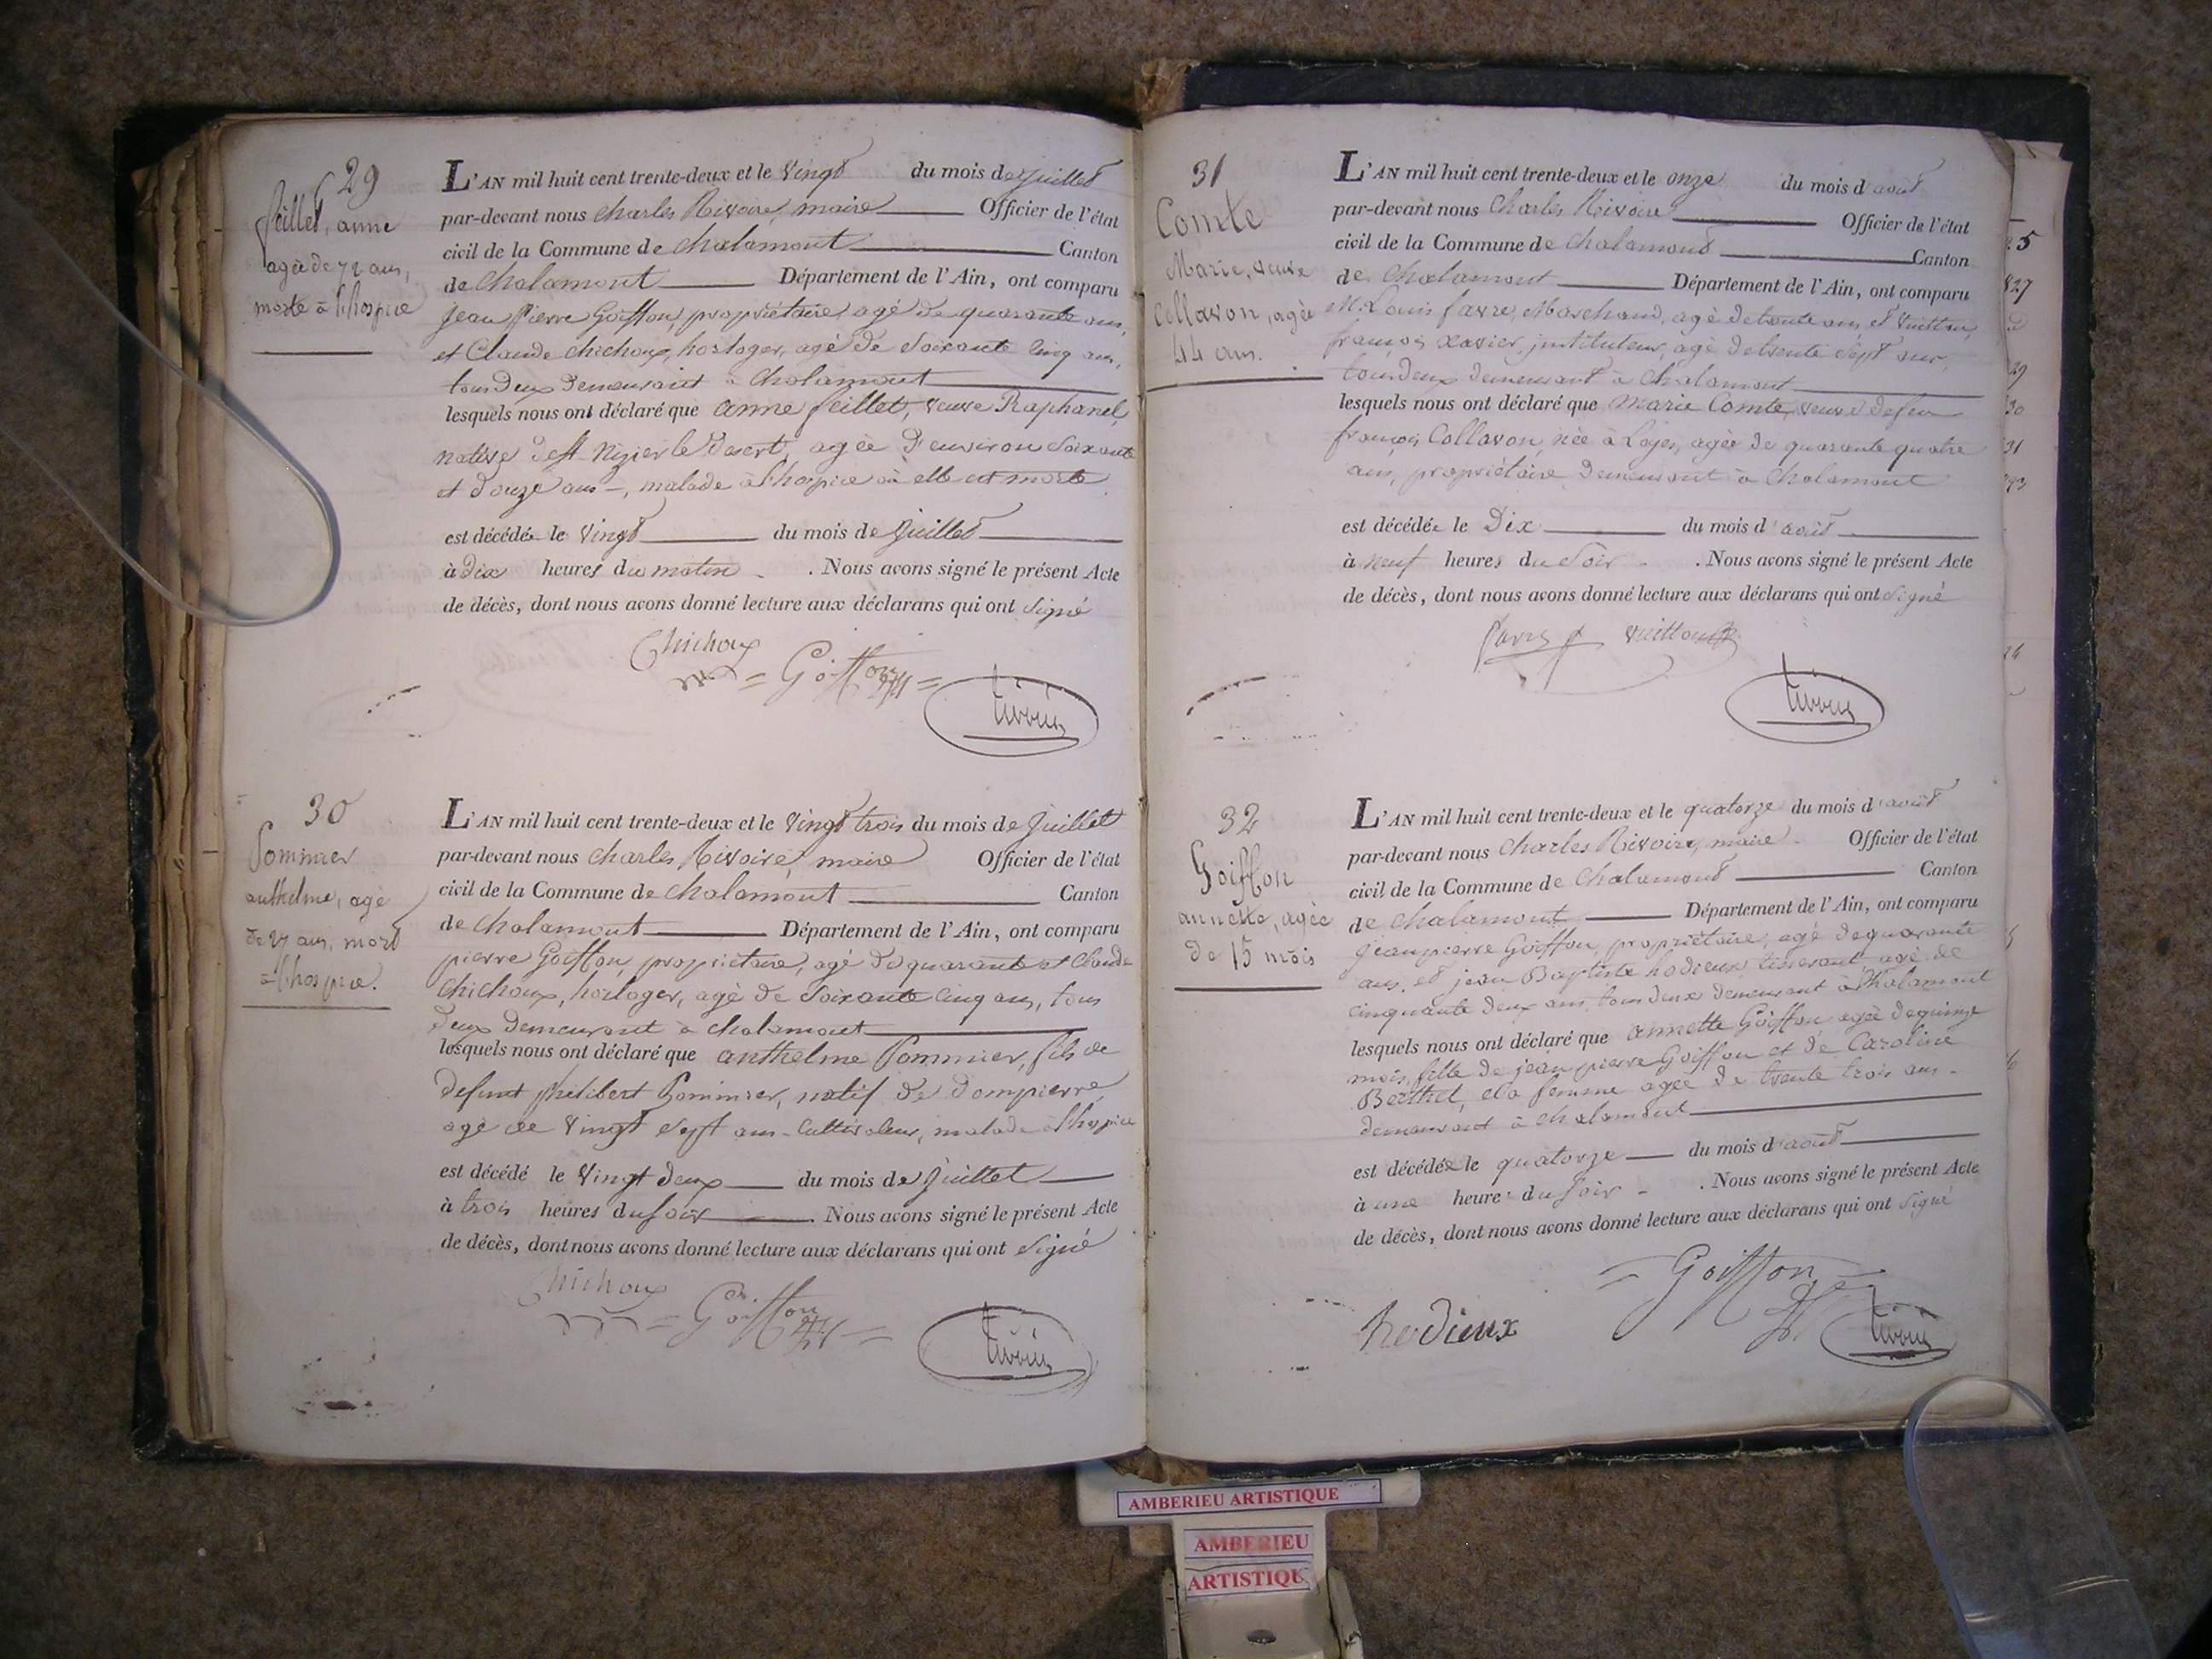 29
feillet, anne
agée de 72 ans,
morte à l'hospice
L'AN mil huit cent trente-deux et le vingt du mois de juillet
par-devant nous Charles Rivoire, maire Officier de l'état
civil de la Commune de Chalamont Canton
de Chalamont Département de l'Ain, ont comparu
jean pierre Goiffon, propriétaire agé de quarante ans,
et Claude Chichoux, horloger, agé de Soixante cinq ans,
tous deux demeurant à Chalamont
lesquels nous ont déclaré que anne feillet, veuve Raphanel,
native de st Nizier le Désert, agée d'environ Soixante
et douze ans, malade à l'hospice où elle est morte
est décédée le vingt du mois de juillet
à dix heures du matin. Nous avons signé le présent Acte
de décès, dont nous avons donné lecture aux déclarans qui ont signé
Chichoux
Goiffon
Rivoire
30
Pommier
anthelme, agé
de 27 ans, mort
à l'hospice.
L'AN mil huit cent trente-deux et le vingt trois du mois de juillet
par-devant nous Charles Rivoire, maire Officier de l'état
civil de la Commune de Chalamont Canton
de Chalamont Département de l'Ain, ont comparu
pierre Goiffon, propriétaire, agé de quarante et Claude
Chichoux, horloger, agé de Soixante cinq ans, tous
deux demeurant à Chalamont
lesquels nous ont déclaré que anthelme Pommier, fils de
defunt philibert Pommier, natif de dompierre,
agé de vingt sept ans, cultivateur, malade à l'hospice
est décédé le vingt deux du mois de juillet
à trois heures du soir. Nous avons signé le présent Acte
de décès, dont nous avons donné lecture aux déclarans qui ont signé
Chichoux
Goiffon
Rivoire
31
Comte
Marie, veuve
Collavon, agée
44 ans.
L'AN mil huit cent trente-deux et le onze du mois d'août
par-devant nous Charles Rivoire Officier de l'état
civil de la Commune de Chalamont Canton
de Chalamont Département de l'Ain, ont comparu
M. Louis favre, Marchand, agé de trente ans, et Vuitton,
françois xavier, instituteur, agé de trente sept ans,
tous deux demeurant à Chalamont
lesquels nous ont déclaré que Marie Comte, veuve de feu
françois Collavon, née à Loyes, agée de quarante quatre
ans, propriétaire demeurant à Chalamont
est décédée le Dix du mois d'août
à neuf heures du soir. Nous avons signé le présent Acte
de décès, dont nous avons donné lecture aux déclarans qui ont signé
favre Vuitton
Rivoire
32
Goiffon
annette, agée
de 15 mois
L'AN mil huit cent trente-deux et le quatorze du mois d'août
par-devant nous Charles Rivoire, maire Officier de l'état
civil de la Commune de Chalamont Canton
de Chalamont Département de l'Ain, ont comparu
jean pierre Goiffon, propriétaire, agé de quarante
ans, et jean Baptiste hodieux tisserant, agé de
cinquante deux ans, tous deux demeurant à Chalamont
lesquels nous ont déclaré que annette Goiffon agée de quinze
mois, fille de jean pierre Goiffon et de Caroline
Berthet, sa femme agée de trente trois ans.
demeurant à Chalamont
est décédée le quatorze du mois d'août
à une heure du soir. Nous avons signé le présent Acte
de décès, dont nous avons donné lecture aux déclarans qui ont signé
Goiffon
hodieux
Rivoire
AMBERIEU ARTISTIQUE
AMBERIEU
ARTISTIQUE